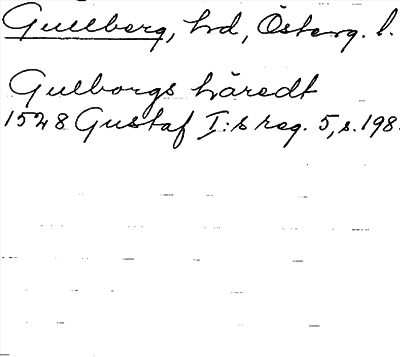 Gullberg, hd, Österg. l.
Gulborgs häredt
1528 Gustaf I:s reg. 5, s. 198.